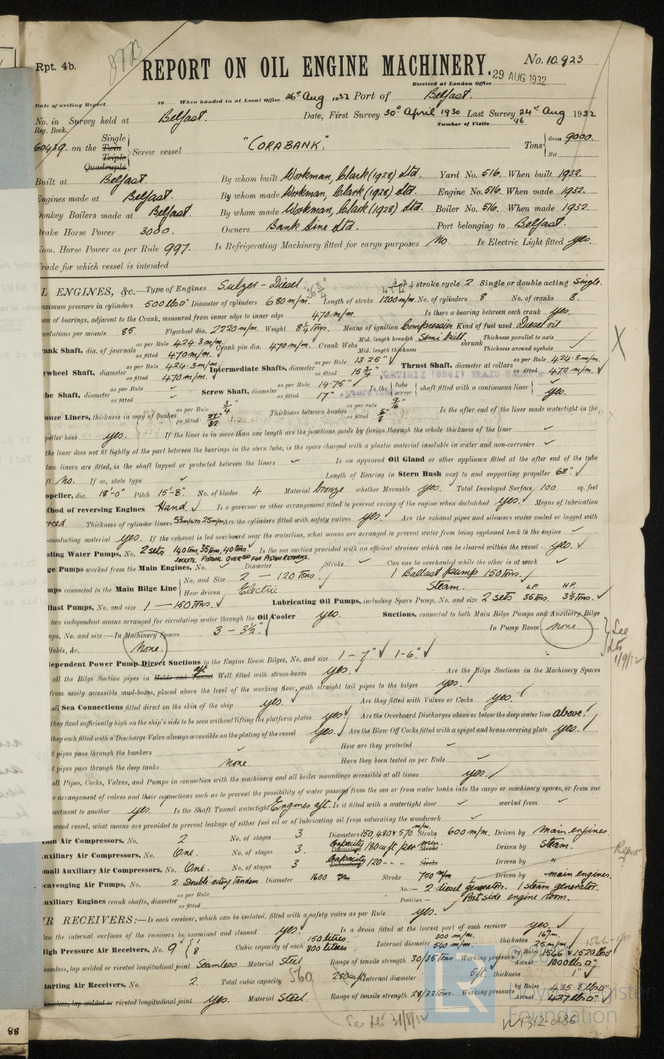 Rpt. 4b.
REPORT ON OIL ENGINE MACHINERY.
No. 10.923
Received at London Office 29 AUG 1932
Date of writing Report 19 When handed in at Local Office 26th Aug 1932 Port of Belfast.
No. in Survey held at Belfast. Date, First Survey 30th April 1930 Last Survey 24th Aug 1932
Reg. Book. Number of Visits 96
60439 on the Single Twin Triple Quadruple Screw vessel "CORABANK". Tons Gross 9000. Net
Built at Belfast. By whom built Workman, Clark (1928) Ltd. Yard No. 516. When built 1932.
Engines made at Belfast. By whom made Workman, Clark (1928) Ltd. Engine No. 516. When made 1932.
Donkey Boilers made at Belfast. By whom made Workman, Clark (1928) Ltd. Boiler No. 516. When made 1932.
Brake Horse Power 3000. Owners Bank Line Ltd. Port belonging to Belfast.
Nom. Horse Power as per Rule 997. Is Refrigerating Machinery fitted for cargo purposes No. Is Electric Light fitted yes.
Trade for which vessel is intended
L ENGINES, &c.—Type of Engines Sulzer-Diesel 2 or 4 stroke cycle 2 Single or double acting Single.
aximum pressure in cylinders 500 lbs Diameter of cylinders 680 m/m. Length of stroke 1200 m/m. No. of cylinders 8 No. of cranks 8.
an of bearings, adjacent to the Crank, measured from inner edge to inner edge 470 m/m. Is there a bearing between each crank yes.
evolutions per minute 85. Flywheel dia. 2220 m/m. Weight Tons. Means of ignition Compression Kind of fuel used Diesel oil
ank Shaft, dia. of journals as per Rule 424.3 m/m. as fitted 470 m/m. Crank pin dia. 470 m/m. Crank Webs Mid. length breadth Semi built Mid. length thickness shrunk Thickness parallel to axis Thickness around eyehole
ywheel Shaft, diameter as per Rule 424.3 m/m. as fitted 470 m/m. Intermediate Shafts, diameter as per Rule 13.25" as fitted Thrust Shaft, diameter at collars as per Rule 424.3 m/m. as fitted 470 m/m.
be Shaft, diameter as per Rule as fitted Screw Shaft, diameter as per Rule 14.75" as fitted 17" Is the tube screw shaft fitted with a continuous liner yes.
onze Liners, thickness in way of bushes as per Rule as fitted Thickness between bushes as per Rule as fitted Is the after end of the liner made watertight in the
peller boss yes. If the liner is in more than one length are the junctions made by fusion through the whole thickness of the liner
the liner does not fit tightly at the part between the bearings in the stern tube, is the space charged with a plastic material insoluble in water and non-corrosive
two liners are fitted, is the shaft lapped or protected between the liners Is an approved Oil Gland or other appliance fitted at the after end of the tube
ft no. If so, state type Length of Bearing in Stern Bush next to and supporting propeller 68"
opeller, dia. 18'-0" Pitch 15'-8" No. of blades 4 Material bronze whether Moveable yes. Total Developed Surface 100 sq. feet
thod of reversing Engines Hand. Is a governor or other arrangement fitted to prevent racing of the engine when declutched yes. Means of lubrication
rced Thickness of cylinder liners 53 m/m to 25 m/m Are the cylinders fitted with safety valves yes Are the exhaust pipes and silencers water cooled or lagged with
-conducting material yes. If the exhaust is led overboard near the waterline, what means are arranged to prevent water being syphoned back to the engine
oling Water Pumps, No. 2 sets 140 Tons, 35 Tons, 40 Tons. Is the sea suction provided with an efficient strainer which can be cleared within the vessel yes.
ge Pumps worked from the Main Engines, No. Diameter Stroke Can one be overhauled while the other is at work
mps connected to the Main Bilge Line No. and Size 2 — 120 Tons. 1 Ballast pump 150 Tons.
How driven Electric Steam.
llast Pumps, No. and size 1 — 150 Tons. Lubricating Oil Pumps, including Spare Pump, No. and size 2 sets L.P. 35 Tons. H.P. 3½ Tons.
two independent means arranged for circulating water through the Oil Cooler yes. Suctions, connected to both Main Bilge Pumps and Auxiliary Bilge
ps, No. and size:—In Machinery Spaces 3 — 3½". In Pump Room None.
Holds, &c. None.
ependent Power Pump Direct Suctions to the Engine Room Bilges, No. and size 1 — 7" 1-6"
all the Bilge Suction pipes in Holds and Well fitted with strum-boxes yes. Are the Bilge Suctions in the Machinery Spaces
from easily accessible mud-boxes, placed above the level of the working floor, with straight tail pipes to the bilges yes.
all Sea Connections fitted direct on the skin of the ship yes. Are they fitted with Valves or Cocks yes.
they fixed sufficiently high on the ship's side to be seen without lifting the platform plates yes. Are the Overboard Discharges above or below the deep water line above.
they each fitted with a Discharge Valve always accessible on the plating of the vessel yes. Are the Blow Off Cocks fitted with a spigot and brass covering plate yes.
t pipes pass through the bunkers How are they protected
t pipes pass through the deep tanks none. Have they been tested as per Rule
all Pipes, Cocks, Valves, and Pumps in connection with the machinery and all boiler mountings accessible at all times yes.
e arrangement of valves and their connections such as to prevent the possibility of water passing from the sea or from water tanks into the cargo or machinery spaces, or from one
artment to another yes. Is the Shaft Tunnel watertight Engines aft. Is it fitted with a watertight door worked from
wood vessel, what means are provided to prevent leakage of either fuel oil or of lubricating oil from saturating the woodwork
ain Air Compressors, No. 2 No. of stages 3 Diameters 150, 480 & 570 m/m. Stroke 600 m/m. Driven by main engines.
uxiliary Air Compressors, No. One. No. of stages 3. Capacity 180 cu ft per min. Stroke Driven by Steam.
mall Auxiliary Air Compressors, No. One. No. of stages 3 Capacity 120 Stroke Driven by "
cavenging Air Pumps, No. 2 Double acting tandem Diameter 1600 Stroke 700 m/m Driven by main engines.
uxiliary Engines crank shafts, diameter as per Rule as fitted No. — 2 diesel generators. 1 Steam generator.
Position — Port side engine room.
IR RECEIVERS:—Is each receiver, which can be isolated, fitted with a safety valve as per Rule yes.
n the internal surfaces of the receivers be examined and cleaned yes Is a drain fitted at the lowest part of each receiver yes
igh Pressure Air Receivers, No. 9 Cubic capacity of each 150 litres. 800 litres. Internal diameter 300 m/m. 560 m/m. thickness 25 m/m.
eamless, lap welded or riveted longitudinal joint Seamless Material Steel Range of tensile strength 30/35 tons Working pressure by Rules Actual 1000 lbs
tarting Air Receivers, No. 2. Total cubic capacity 560 280 cu ft Internal diameter 5ft thickness 1"
eamless, lap welded or riveted longitudinal joint yes. Material Steel. Range of tensile strength 28/32 tons Working pressure by Rules Actual
Lloyd's Register
Foundation
W1312-0186
88